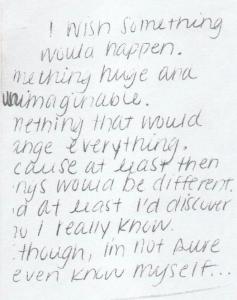 I wish something
would happen.
mething huge and
unimaginable.
mething that would
ange everything.
cause at least then
ngs would be different.
d at least I'd discover
o I really know.
though, i'm not sure
even know myself...